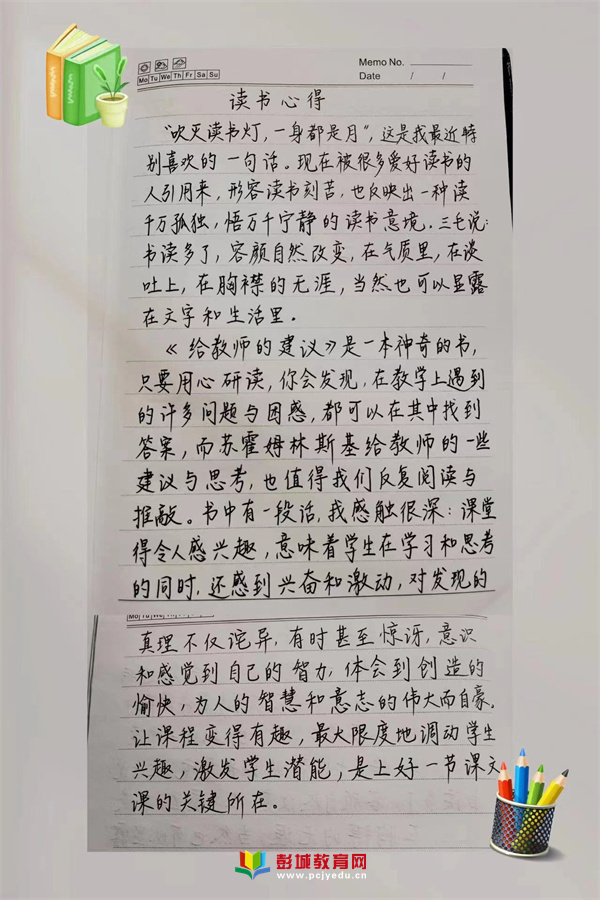 Memo No.
Mo Tu We Th Fr Sa Su
Date / /
读书心得
“吹灭读书灯，一身都是月”，这是我最近特
别喜欢的一句话。现在被很多爱好读书的
人引用来，形容读书刻苦，也反映出一种读
千万孤独，悟万千宁静的读书意境。三毛说：
书读多了，容颜自然改变，在气质里，在谈
吐上，在胸襟的无涯，当然也可以显露
在文字和生活里。
《给教师的建议》是一本神奇的书，
只要用心研读，你会发现，在教学上遇到
的许多问题与困惑，都可以在其中找到
答案，而苏霍姆林斯基给教师的一些
建议与思考，也值得我们反复阅读与
推敲。书中有一段话，我感触很深：课堂
得令人感兴趣，意味着学生在学习和思考
的同时，还感到兴奋和激动，对发现的
Mo Tu We Th
真理不仅诧异，有时甚至惊讶，意识
和感觉到自己的智力，体会到创造的
愉快，为人的智慧和意志的伟大而自豪。
让课程变得有趣，最大限度地调动学生
兴趣，激发学生潜能，是上好一节课文
课的关键所在。
彭城教育网
www.pcjyedu.cn